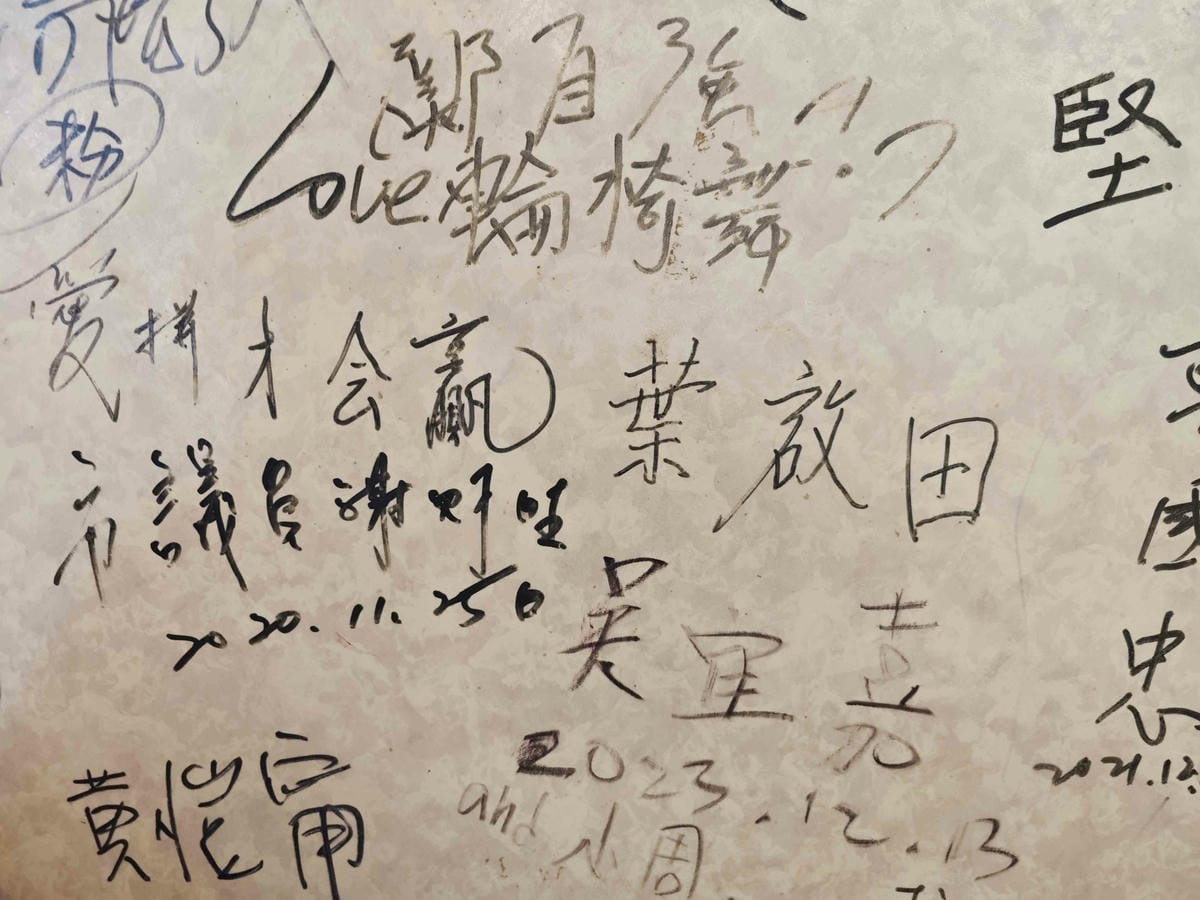 粉
鄭自強
Love 輪椅舞
堅
愛拼才会贏
葉啟田
市議員謝
2020.11.25日
吳宜
2023.12.13
and 小周
國忠
2021.12.
黃愷甯